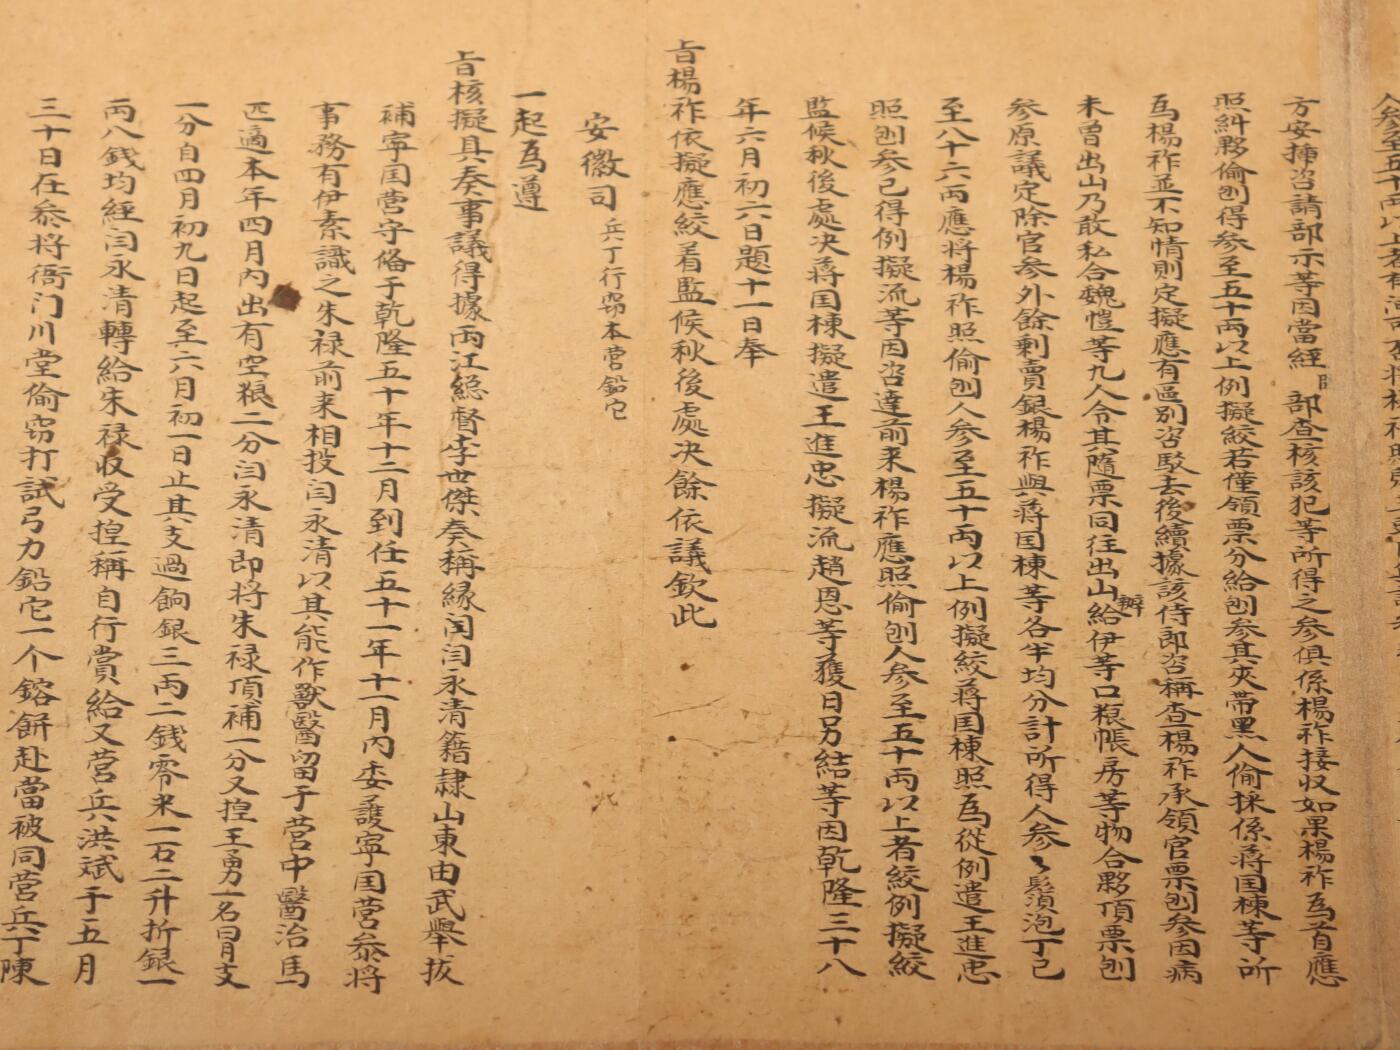 方安揷咨請部示等因當經 部查核該犯等所得之参俱係楊祚接収如果楊祚為首應
照糾夥偷刨得参至五十両以上例擬絞若僅領票分給刨参其夾帶黑人偷採係蒋国棟等所
為楊祚並不知情則定擬應有區別咨駁去後續據該侍郎咨稱查楊祚承領官票刨参因病
未曽出山乃敢私合魏愷等九人令其隨票同往出山辦給伊等口粮帳房等物合夥頂票刨
参原議定除官参外餘剰賣銀楊祚與蒋国棟等各半均分計所得人参〻鬚泡丁己
至八十六両應將楊祚照偷刨人参至五十両以上例擬絞蒋国棟照為從例遣王進忠
照刨参己得例擬流等因咨達前来楊祚應照偷刨人参至五十両以上者絞例擬絞
監候秋後處决蒋国棟擬遣王進忠擬流趙恩等獲日另結等因乾隆三十八
年六月初六日題十一日奉
旨楊祚依擬應絞着監候秋後處决餘依議欽此
安徽司 兵丁行窃本营鉛它
一起為遵
旨核擬具奏事議得據両江緫督李世傑奏稱縁闫闫永清籍隷山東由武舉拔
補寜国营守俻于乾隆五十年十二月到任五十一年十一月内委護寜国营叅將
事務有伊素識之朱禄前来相投闫永清以其能作獸醫留于营中醫治馬
匹適本年四月内出有空粮二分闫永清即將朱禄頂補一分又揑王勇一名曰月支
一分自四月初九日起至六月初一日止共支過餉銀三両二錢零米一石二升折銀一
両八錢均經闫永清轉給朱禄收受揑稱自行賞給又营兵洪斌于五月
三十日在叅将衙门川堂偷窃打試弓力鉛它一个鎔餅赴當被同营兵丁陳